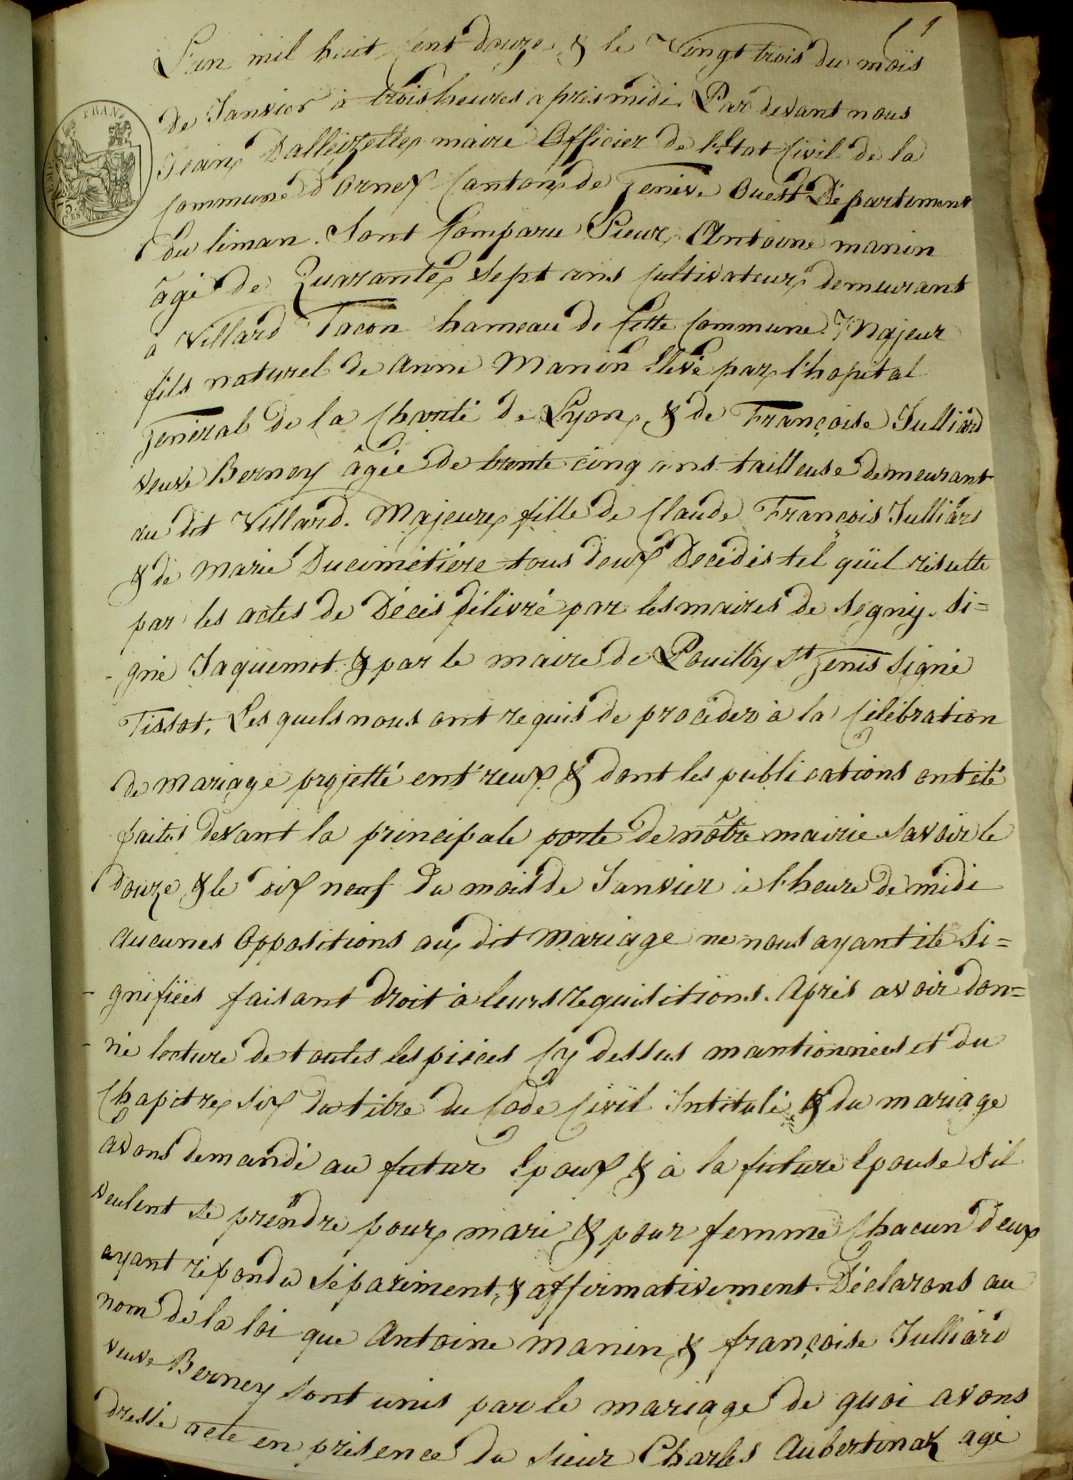 1
L'an mil huit cent douze & le Vingt trois du mois
de Janvier à trois heures après midi. Par devant nous
Jean Dalleizette maire Officier de l'Etat Civil de la
Commune d'Ornex Canton de Genève Ouest Département
du Léman. Sont Comparu Sieur Antoine manin
âgé de Quarante Sept ans Cultivateur demeurant
à Villard Tacon hameau de Cette Commune. Majeur
fils naturel de anne Manin Elevé par l'hopital
Général de la Charité de Lyon, & de Françoise Julliard
veuve Berney âgée de trente cinq ans tailleuse demeurant
au dit Villard. Majeure fille de Claude François Julliard
& de marie Ducimétière tous deux Décédés tel qu'il résulte
par les actes de Décès délivré par les maires de Segny. Si=
-gné Jaquemot & par le maire de Pouilly St Genis Signé
Tissot. Les quels nous ont requis de procéder à la Célébration
de mariage projetté entr'eux & dont les publications ont été
faites devant la principale porte de nôtre mairie Savoir le
douze & le dix neuf du mois de Janvier à l'heure de midi
Aucunes Oppositions au dit Mariage ne nous ayant été Si=
-gnifiées faisant droit à leurs Requisitions. Après avoir don=
-né lecture de toutes les pièces Cy dessus mantionnées et du
Chapitre Six du titre du Code Civil Intitulé & du mariage
avons demandé au futur Epoux & à la future Epouse S'il
veulent se prendre pour mari & pour femme Chacun d'eux
ayant répondu Séparément & affirmativement. Déclarons au
nom de la loi que Antoine manin & françoise Julliard
veuve Berney Sont unis par le mariage de quoi avons
dressé acte en présence du Sieur Charles Aubertinaz agé